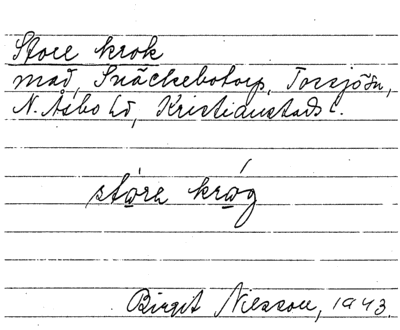 Store krok
mad, Snäckebotorp, Torsjö sn,
N. Åsbo hd, Kristianstads l.
stọ́re krọ́g
Birgit Nilsson, 1943.